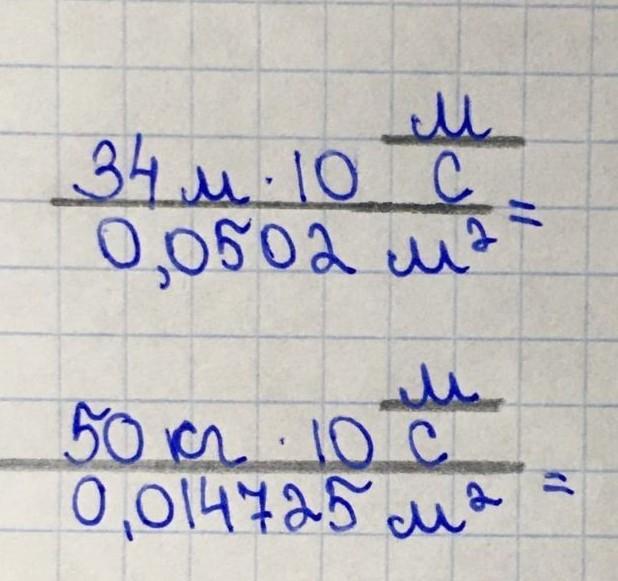 м
34 м · 10 с
=
0,0502 м²
м
50 кг · 10 с
=
0,014725 м²